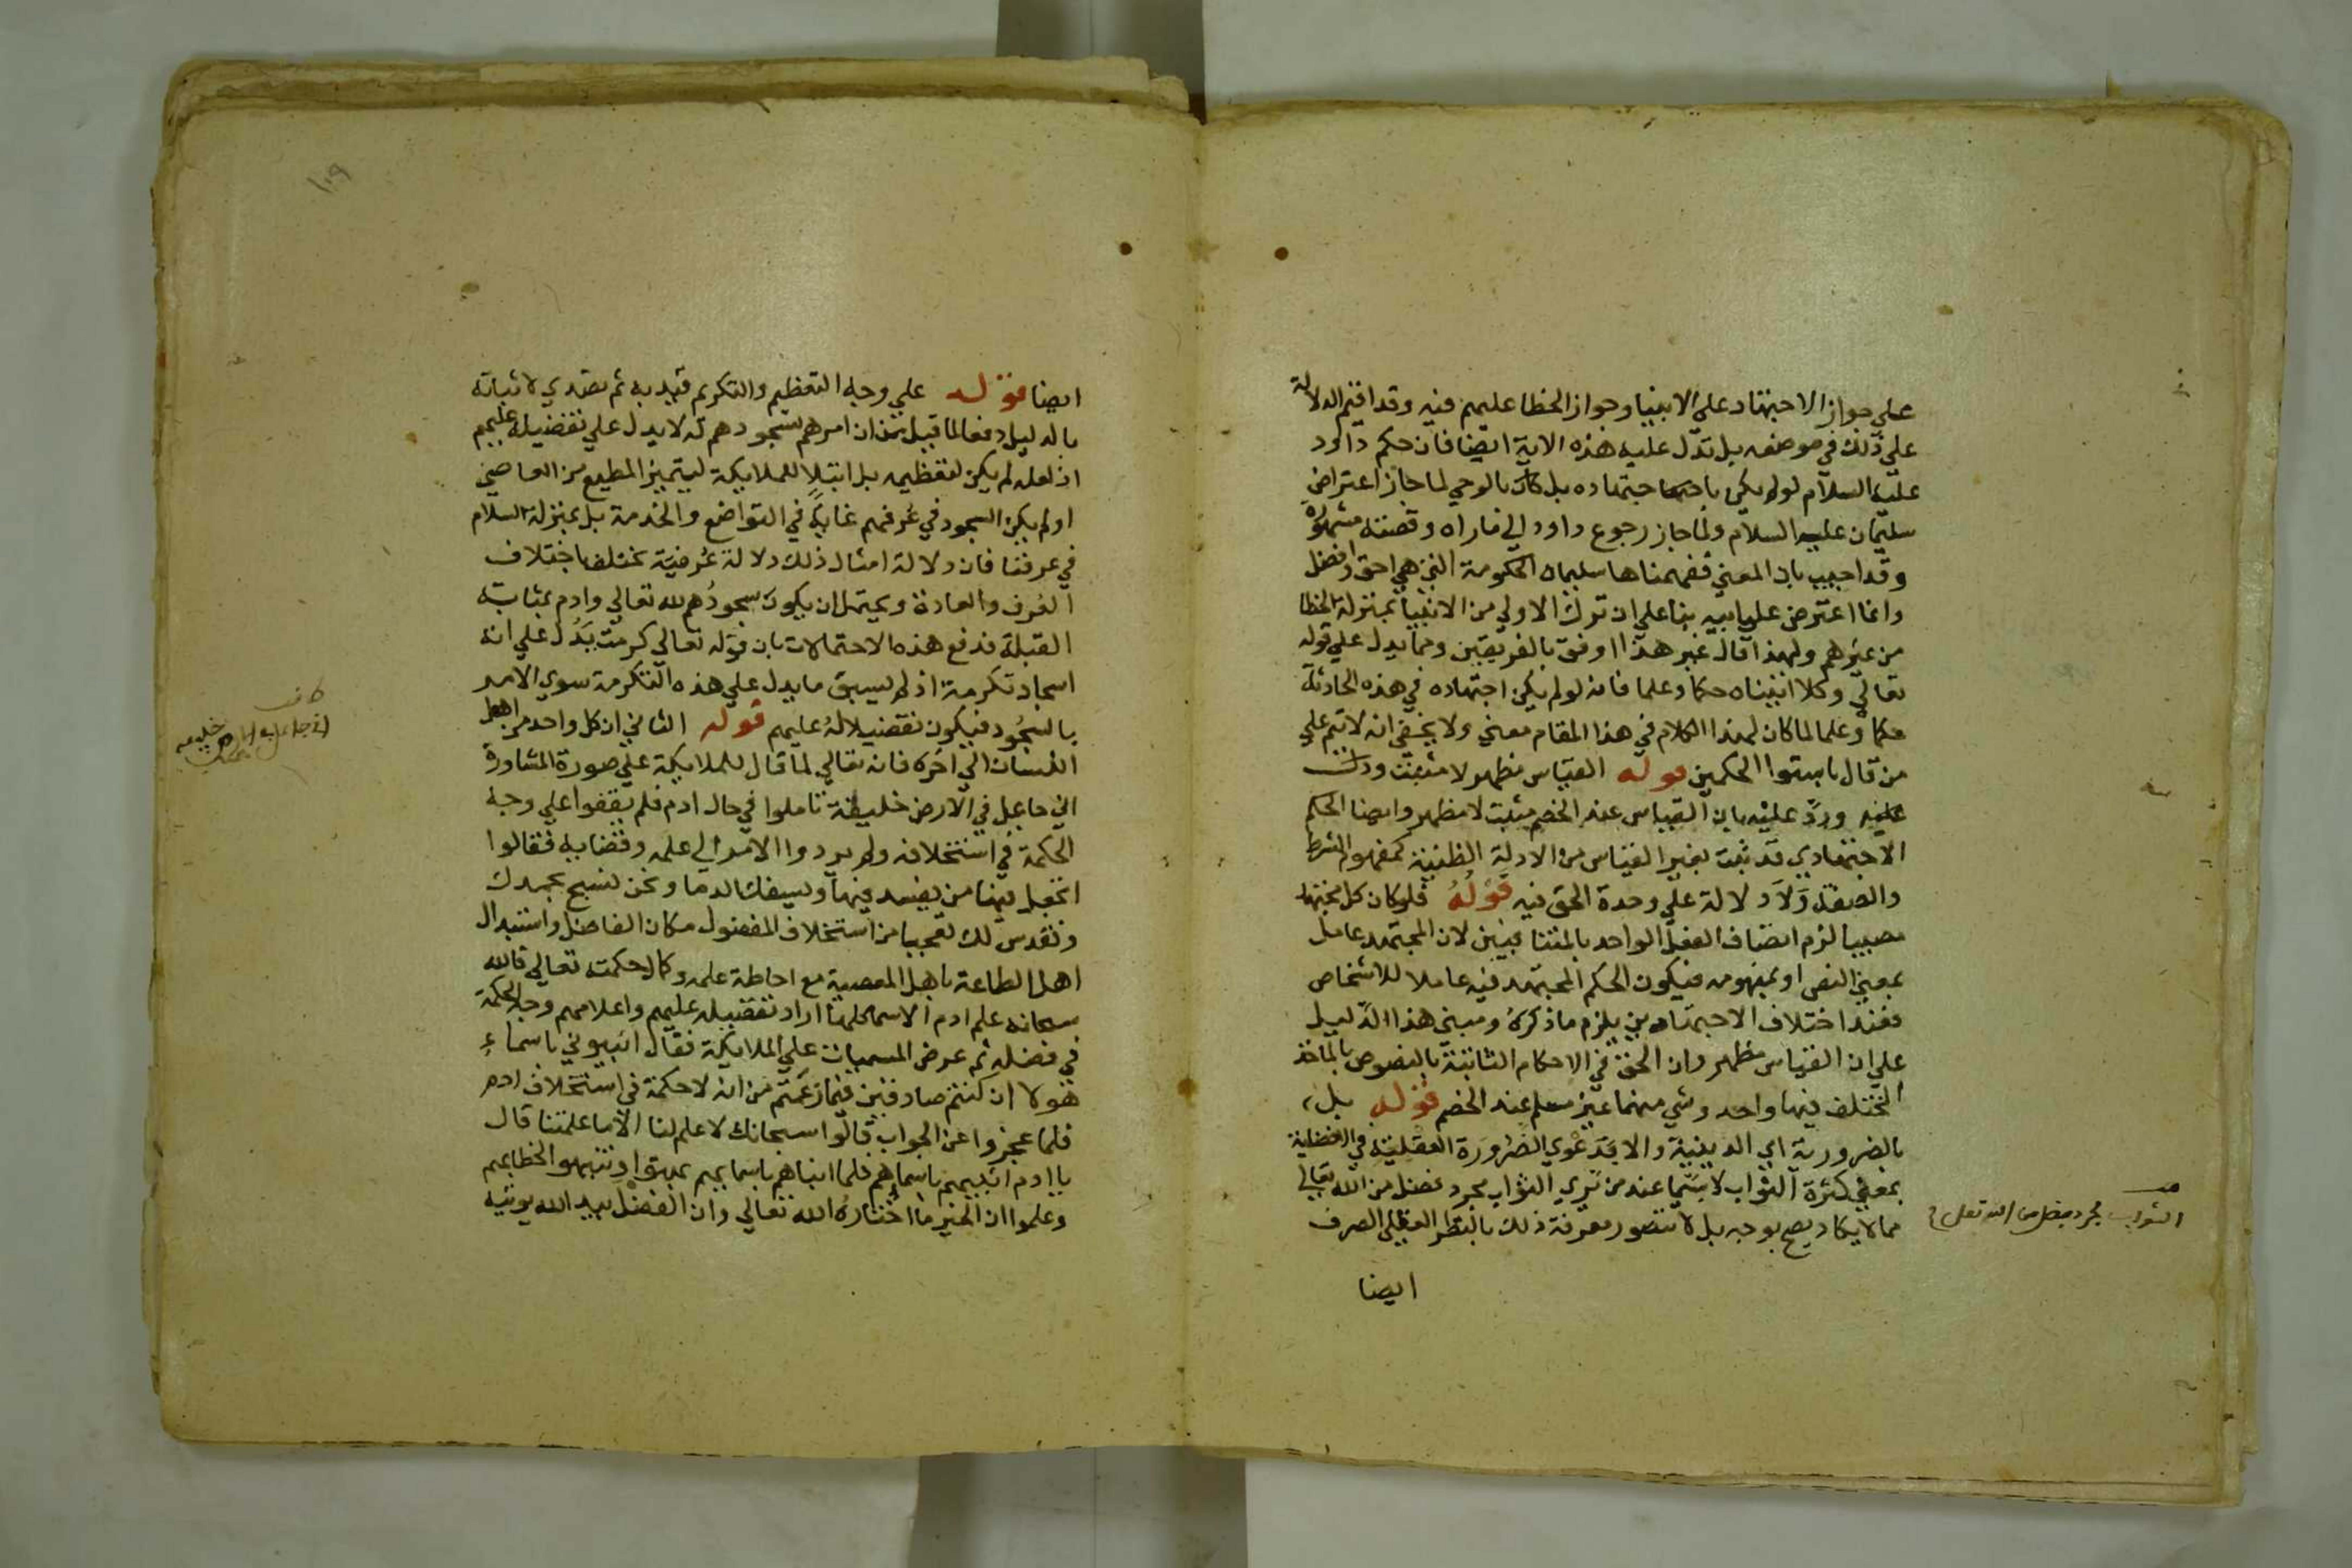 علي جواز الاجتهاد علي الانبيا وجواز الخطا عليهم فيه وقد اقيم الدلالة
علي ذلك في موضعه بل تدل عليه هذه الاية ايضا فان حكم داود
عليه السلام لو لم يكن باجتهاده بل كان بالوحي لما جاز اعتراض
سليمان عليه السلام ولما جاز رجوع داود الي ما راه وقصته مشهورة
وقد اجيب بان المعني ففهمناها سليمان الحكومة التي هي احق وافضل
وانما اعترض علي ابيه بنا علي ان ترك الاولي من الانبيا بمنزلة الخطا
من غيرهم ولهذا قال غير هذا اوفق بالفريقين ومما يدل علي قوله
تعالي وكلا اتيناه حكما وعلما فانه لو لم يكن اجتهاده في هذه الحادثة
حكما وعلما لما كان لهذا الكلام في هذا المقام معني ولا يخفي انه لا يتم علي
من قال باستوا الحكمين قوله القياس مظهر لا مثبت
ورد عليه بان القياس عند الخصم مثبت لا مظهر وايضا الحكم
الاجتهادي قد ثبت بغير القياس من الادلة الظنية كمفهوم الشرط
والصفة ولا دلالة علي وحدة الحق فيه قوله فلو كان كل مجتهد
مصيبا لزم اتصاف الفعل الواحد بالمتنافيين لان المجتهد عامل
بمعني النص او بمفهومه فيكون الحكم المجتهد فيه عاملا للاشخاص
فعند اختلاف الاجتهادين يلزم ما ذكره ومبني هذا الدليل
علي ان القياس مظهر وان الحق في الاحكام الثابتة بالنصوص بالماخذ
المختلف فيها واحد وشي منهما غير مسلم عند الخصم قوله بل
بالضرورية اي الدينية والا فدعوي الضرورة العقلية في الافضلية
بمعني كثرة الثواب لا سيما عند من يري الثواب مجرد فضل من الله تعالي
مما لا يكاد يصح بوجه بل لا يتصور معرفة ذلك بالنظر العقلي الصرف
ايضا
الثواب مجرد فضل من الله تعالي
١٠٩
ايضا قوله علي وجه التعظيم والتكريم قيد به ثم تصدي لاثباته
بالدليل دفعا لما قيل من ان امرهم بسجودهم له لا يدل علي تفضيله عليهم
اذ لعله لم يكن لتعظيمه بل ابتلا للملايكة ليتميز المطيع من العاصي
او لم يكن السجود في عرفهم غاية في التواضع والخدمة بل بمنزلة السلام
في عرفنا فان دلالة امثال ذلك دلالة عرفية تختلف باختلاف
العرف والعادة ويحتمل ان يكون سجودهم لله تعالي وادم بمثابة
القبلة فدفع هذه الاحتمالات بان قوله تعالي كرمت يدل علي انه
اسجاد تكرمة اذ لم يسبق ما يدل علي هذه التكرمة سوي الامر
بالسجود فيكون تفضيلا له عليهم قوله الثاني ان كل واحد من اهل
اللسان الي اخره فانه تعالي لما قال للملايكة علي صورة المشاورة
اني جاعل في الارض خليفة تاملوا في حال ادم فلم يقفوا علي وجه
الحكمة في استخلافه ولم يردوا الامر الي علمه وقضايه فقالوا
اتجعل فيها من يفسد فيها ويسفك الدما ونحن نسبح بحمدك
ونقدس لك تعجبا من استخلاف المفضول مكان الفاضل واستبدال
اهل الطاعة باهل المعصية مع احاطة علمه وكمال حكمته تعالي فالله
سبحانه علم ادم الاسما كلها اراد تفضيله عليهم واعلامهم وجه الحكمة
في فضله ثم عرض المسميات علي الملايكة فقال انبيوني باسماء
هولا ان كنتم صادقين فيما زعمتم من انه لا حكمة في استخلاف ادم
فلما عجزوا عن الجواب قالوا سبحانك لا علم لنا الا ما علمتنا قال
يا ادم انبيهم باسماهم فلما انباهم باسمايهم بهتوا وتنبهوا لخطايهم
وعلموا ان الخير ما اختاره الله تعالي وان الفضل بيد الله يوتيه
اني جاعل في الارض خليفة